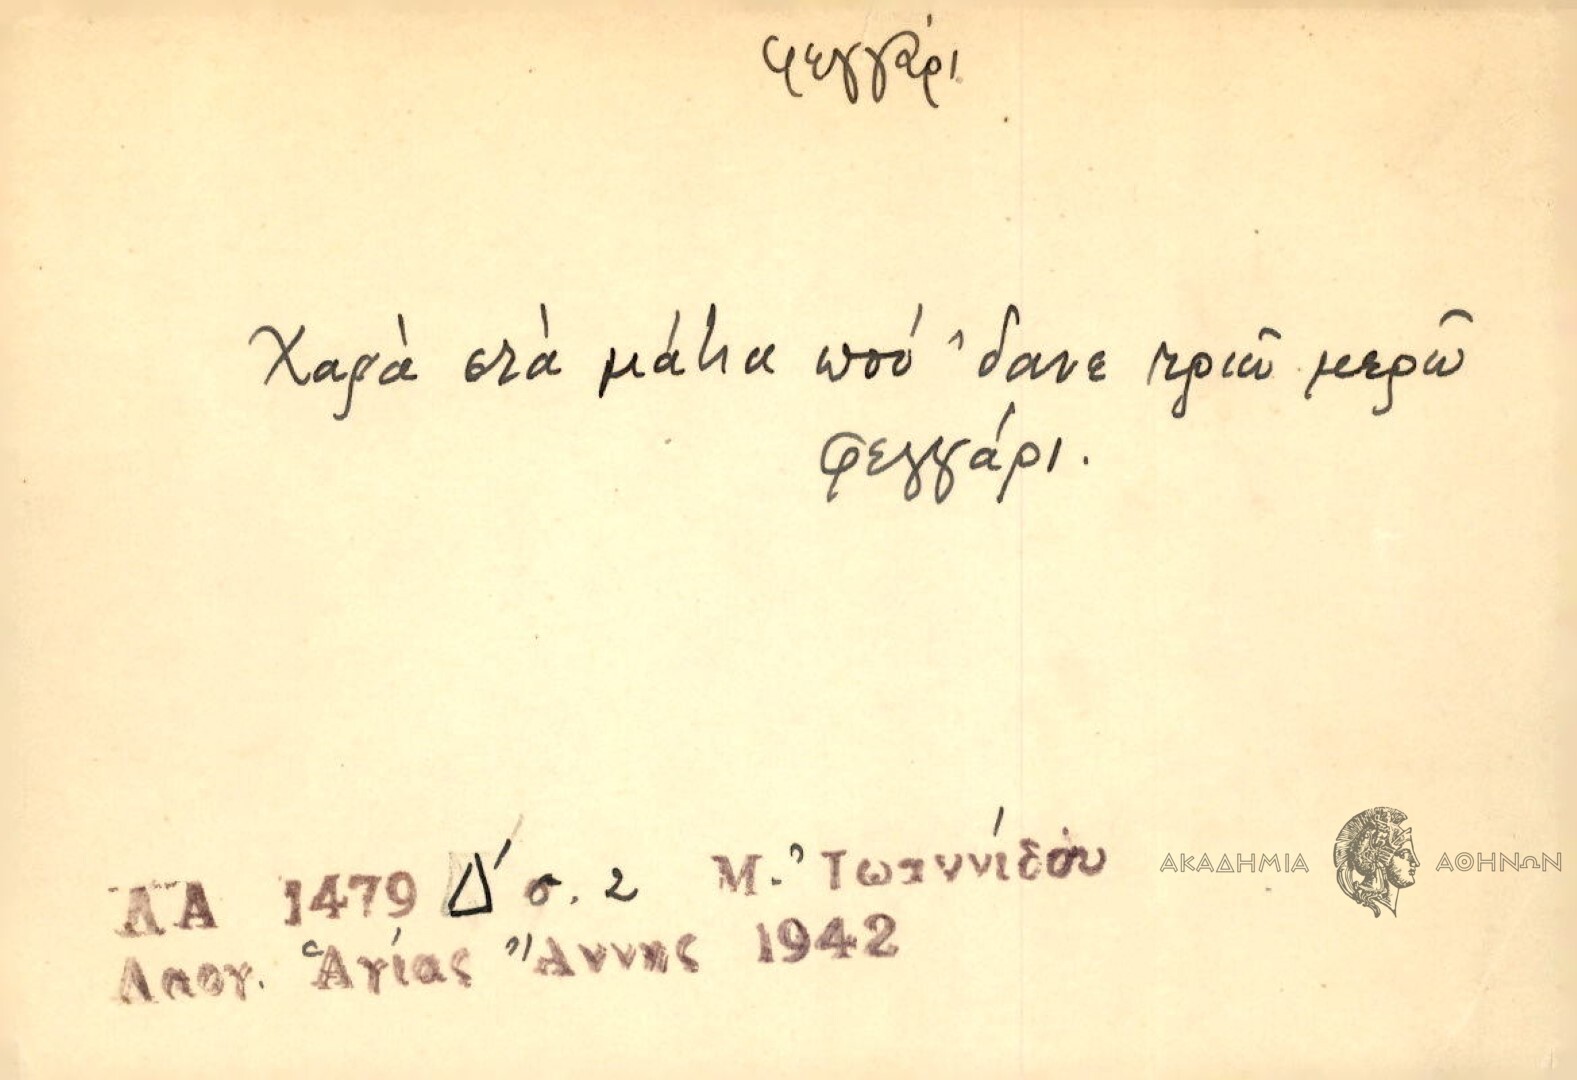 φεγγάρι
Χαρὰ στὰ μάτια ποὺ 'δανε τριῶ μερῶ
φεγγάρι.
ΛΑ 1479 Δ´ σ. 2 Μ. Ἰωαννίδου
Λαογ. Ἁγίας Ἄννης 1942
ΑΚΑΔΗΜΙΑ ΑΘΗΝΩΝ